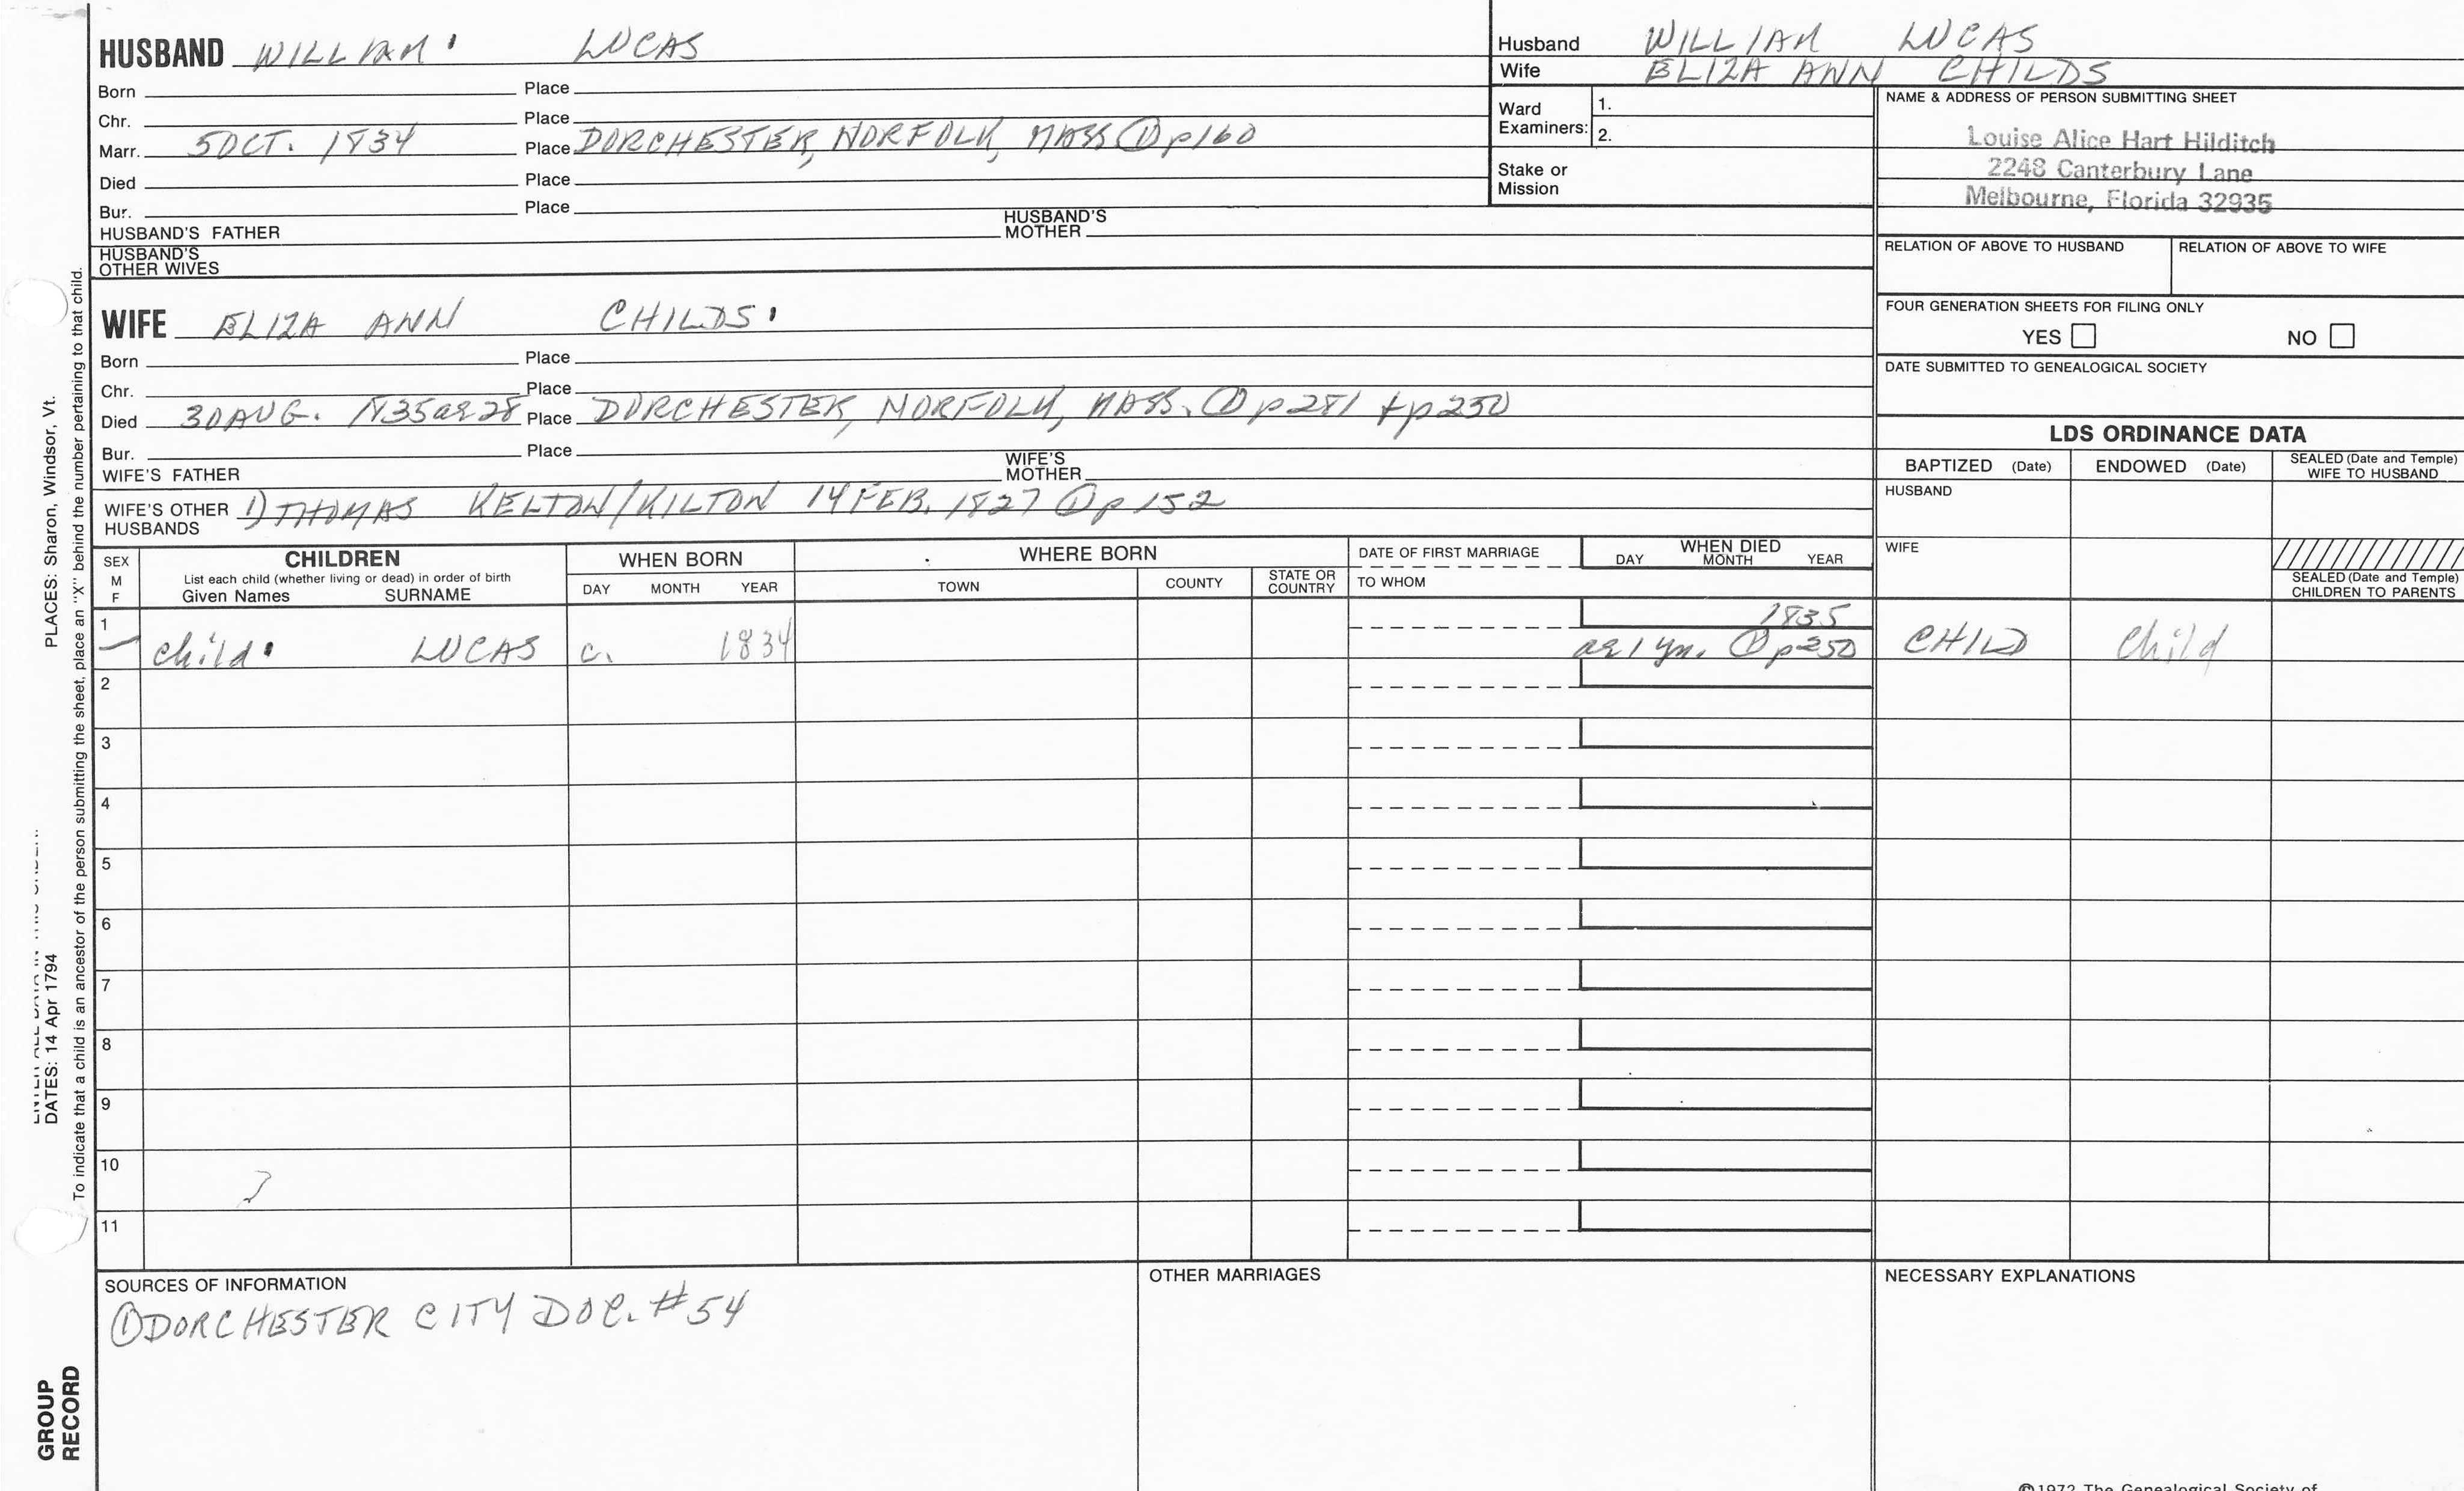 HUSBAND WILLIAM LUCAS
Born Place
Chr. Place
Marr. 5 OCT. 1834 Place DORCHESTER, NORFOLK, MASS ① p160
Died Place
Bur. Place
HUSBAND'S FATHER HUSBAND'S MOTHER
HUSBAND'S OTHER WIVES
Husband WILLIAM LUCAS
Wife ELIZA ANN CHILDS
Ward Examiners: 1.
2.
Stake or Mission
NAME & ADDRESS OF PERSON SUBMITTING SHEET
Louise Alice Hart Hilditch
2248 Canterbury Lane
Melbourne, Florida 32935
RELATION OF ABOVE TO HUSBAND RELATION OF ABOVE TO WIFE
FOUR GENERATION SHEETS FOR FILING ONLY
YES NO
DATE SUBMITTED TO GENEALOGICAL SOCIETY
WIFE ELIZA ANN CHILDS
Born Place
Chr. Place
Died 30 AUG. 1835 ae 28 Place DORCHESTER, NORFOLK, MASS. ① p281 + p250
Bur. Place
WIFE'S FATHER WIFE'S MOTHER
WIFE'S OTHER HUSBANDS 1) THOMAS KELTON/KILTON 14 FEB. 1827 ① p152
LDS ORDINANCE DATA
BAPTIZED (Date) ENDOWED (Date) SEALED (Date and Temple) WIFE TO HUSBAND
HUSBAND
WIFE
SEALED (Date and Temple) CHILDREN TO PARENTS
SEX M F
CHILDREN
List each child (whether living or dead) in order of birth
Given Names SURNAME
WHEN BORN
DAY MONTH YEAR
WHERE BORN
TOWN COUNTY STATE OR COUNTRY
DATE OF FIRST MARRIAGE
TO WHOM
WHEN DIED
DAY MONTH YEAR
1 1835
child LUCAS c. 1834 ae 1 yr. ① p250 CHILD Child
2
3
4
5
6
7
8
9
10
11
SOURCES OF INFORMATION
① DORCHESTER CITY DOC. #54
OTHER MARRIAGES
NECESSARY EXPLANATIONS
©1972 The Genealogical Society of
PLACES: Sharon, Windsor, Vt.
DATES: 14 Apr 1794
To indicate that a child is an ancestor of the person submitting the sheet, place an "X" behind the number pertaining to that child.
GROUP RECORD